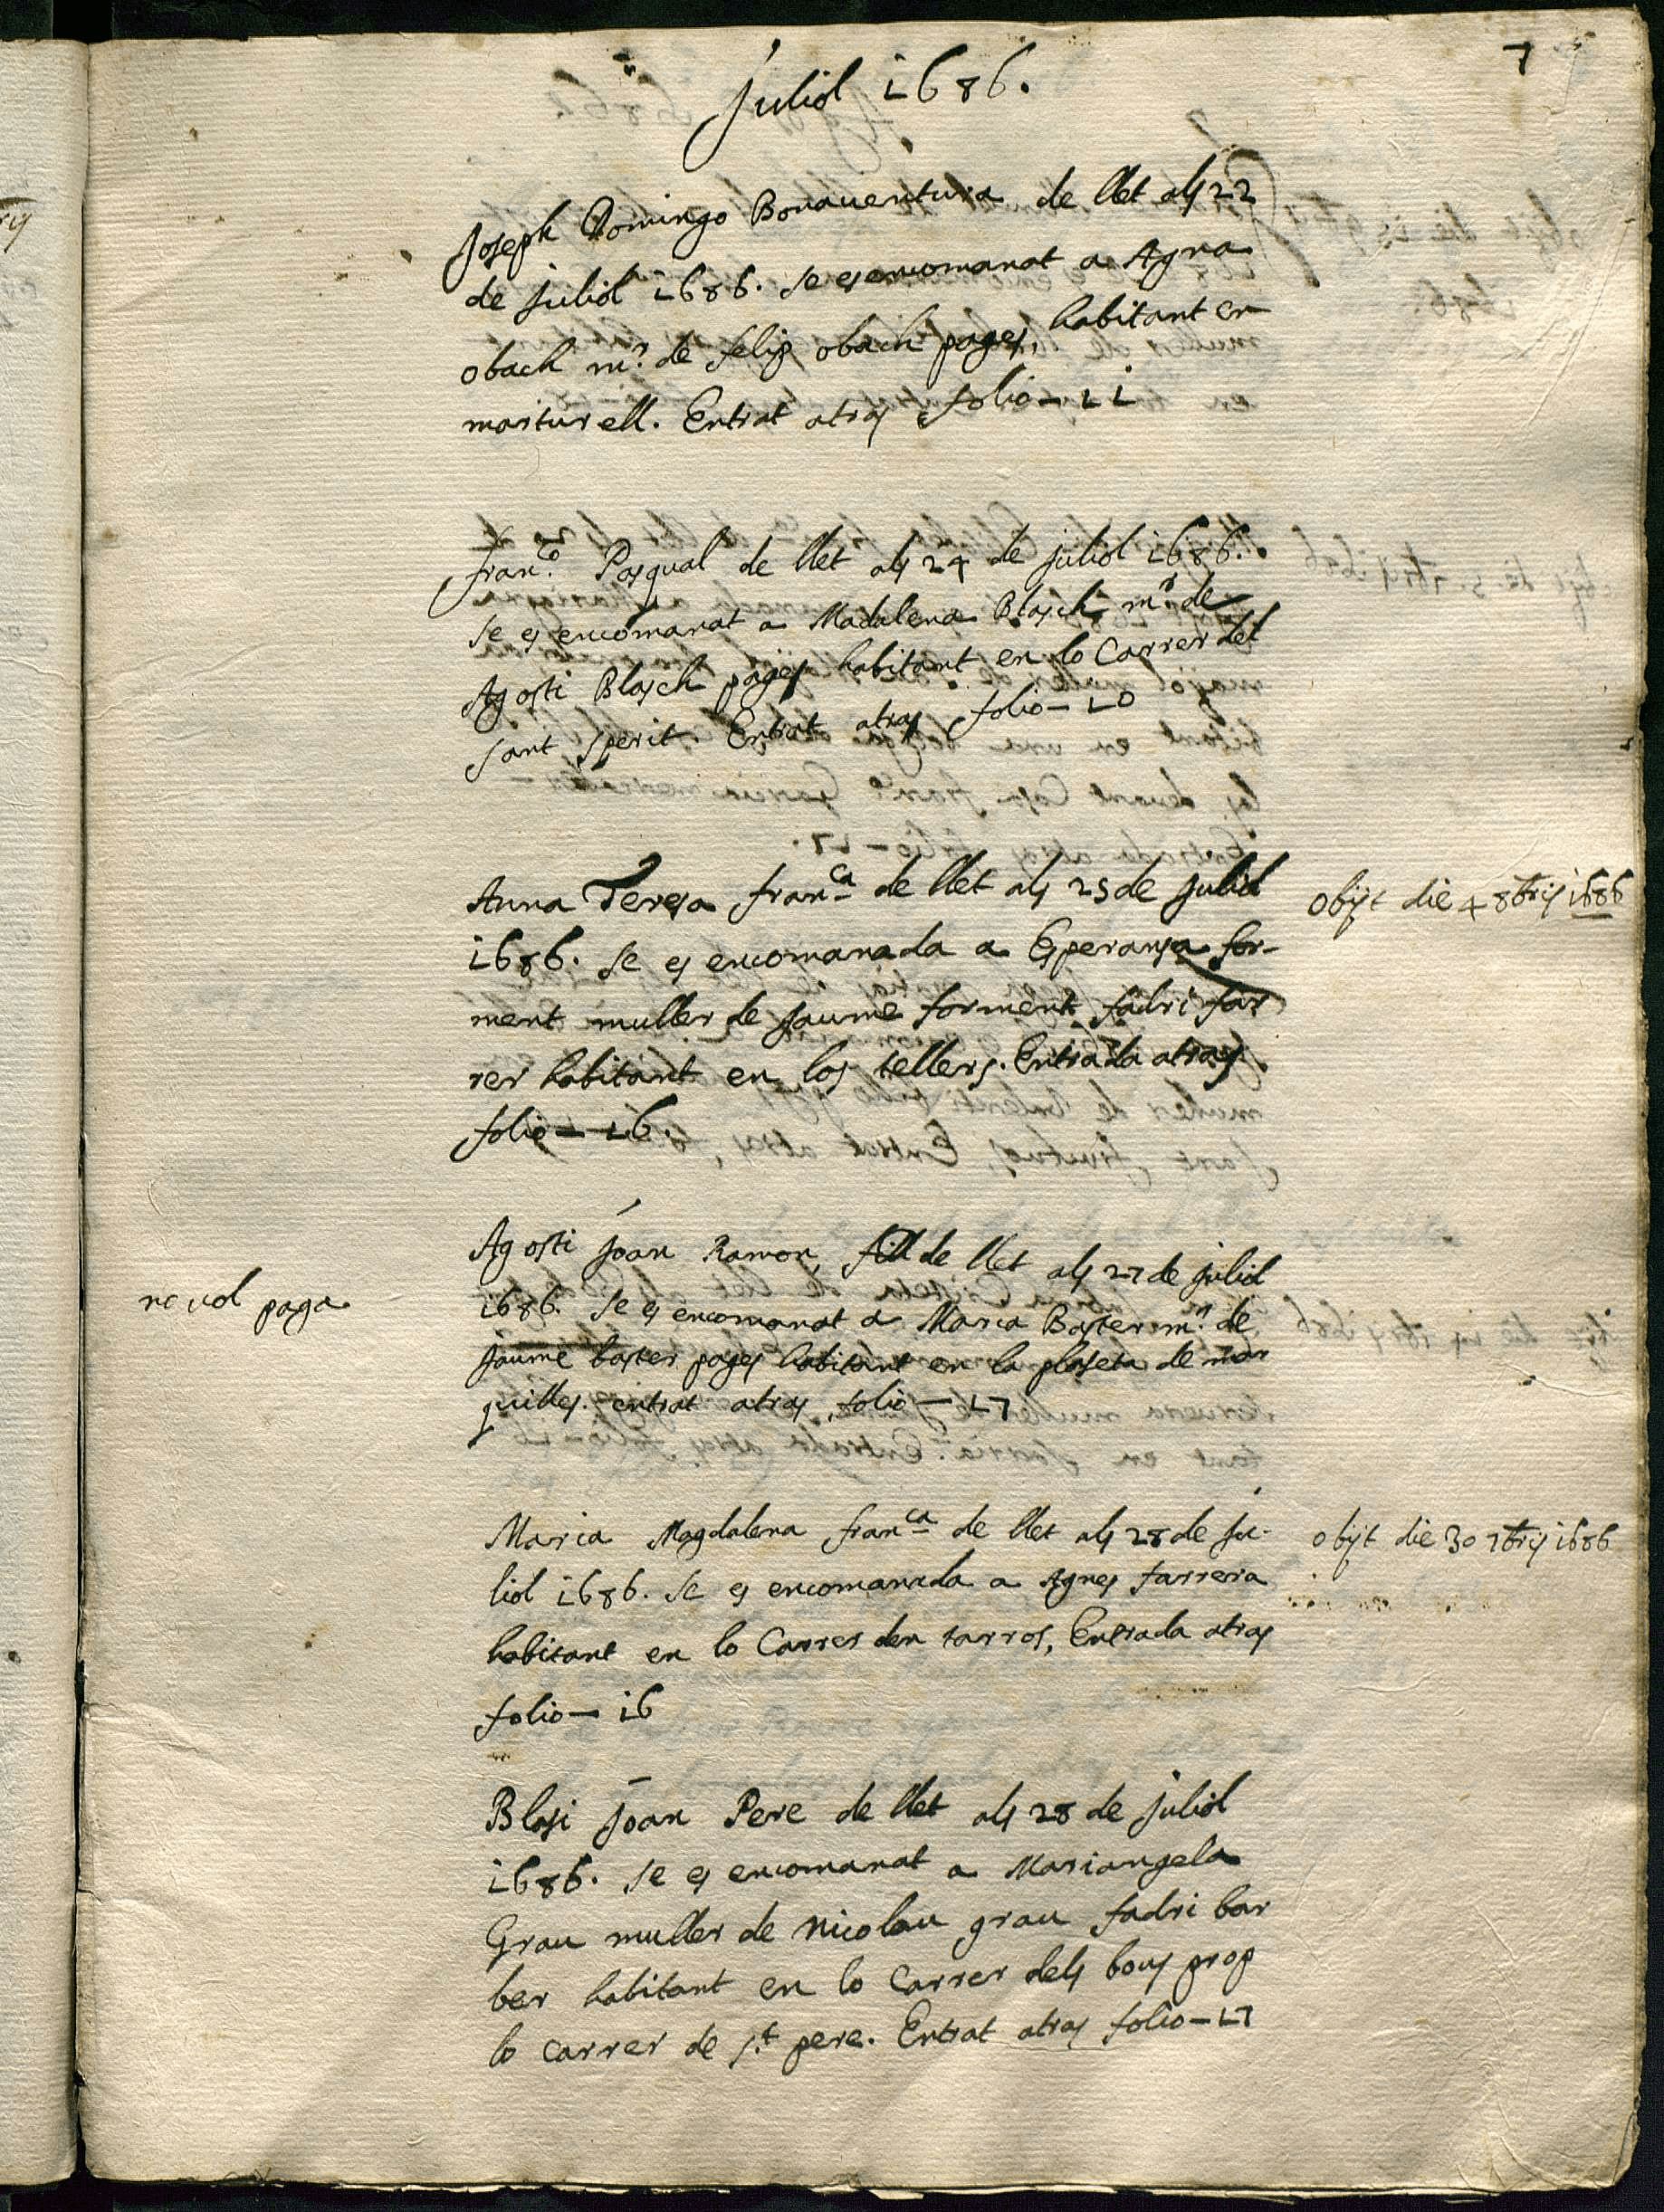 7
Juliol 1686.
Joseph Domingo Bonauentura de llet als 22
de Juliol 1686. se es encomanat a Agna
obach mr. de felip obach pages, habitant en
marturell. Entrat atras folio - 11
franco. Pasqual de llet als 24 de juliol 1686.
se es encomanat a Madalena Blasch mr. de
Agosti Blasch pages habitant en lo Carrer del
sant sperit. Entrat atras folio - 10
Anna Teresa franca de llet als 25 de Juliol
1686. se es encomanada a Esperansa for-
ment muller de Jaume forment fadri far
rer habitant en los tellers. Entrada atras
folio - 16.
obijt die 4 8bris 1686
Agosti Joan Ramon, fill de llet als 27 de juliol
1686. se es encomanat a Maria Baster mr. de
Jaume baster pages habitant en la plaseta de mar
quilles. entrat atras folio - 17
no vol paga
Maria Magdalena franca de llet als 28 de Ju-
liol 1686. se es encomanada a Agnes farrera
habitant en lo Carrer den tarros, Entrada atras
folio - 16
obijt die 30 7bris 1686
Blasi Joan Pere de llet als 28 de Juliol
1686. se es encomanat a Mariangela
Grau muller de Nicolau grau fadri bar
ber habitant en lo Carrer dels bous prop
lo carrer de st. pere. Entrat atras folio - 17